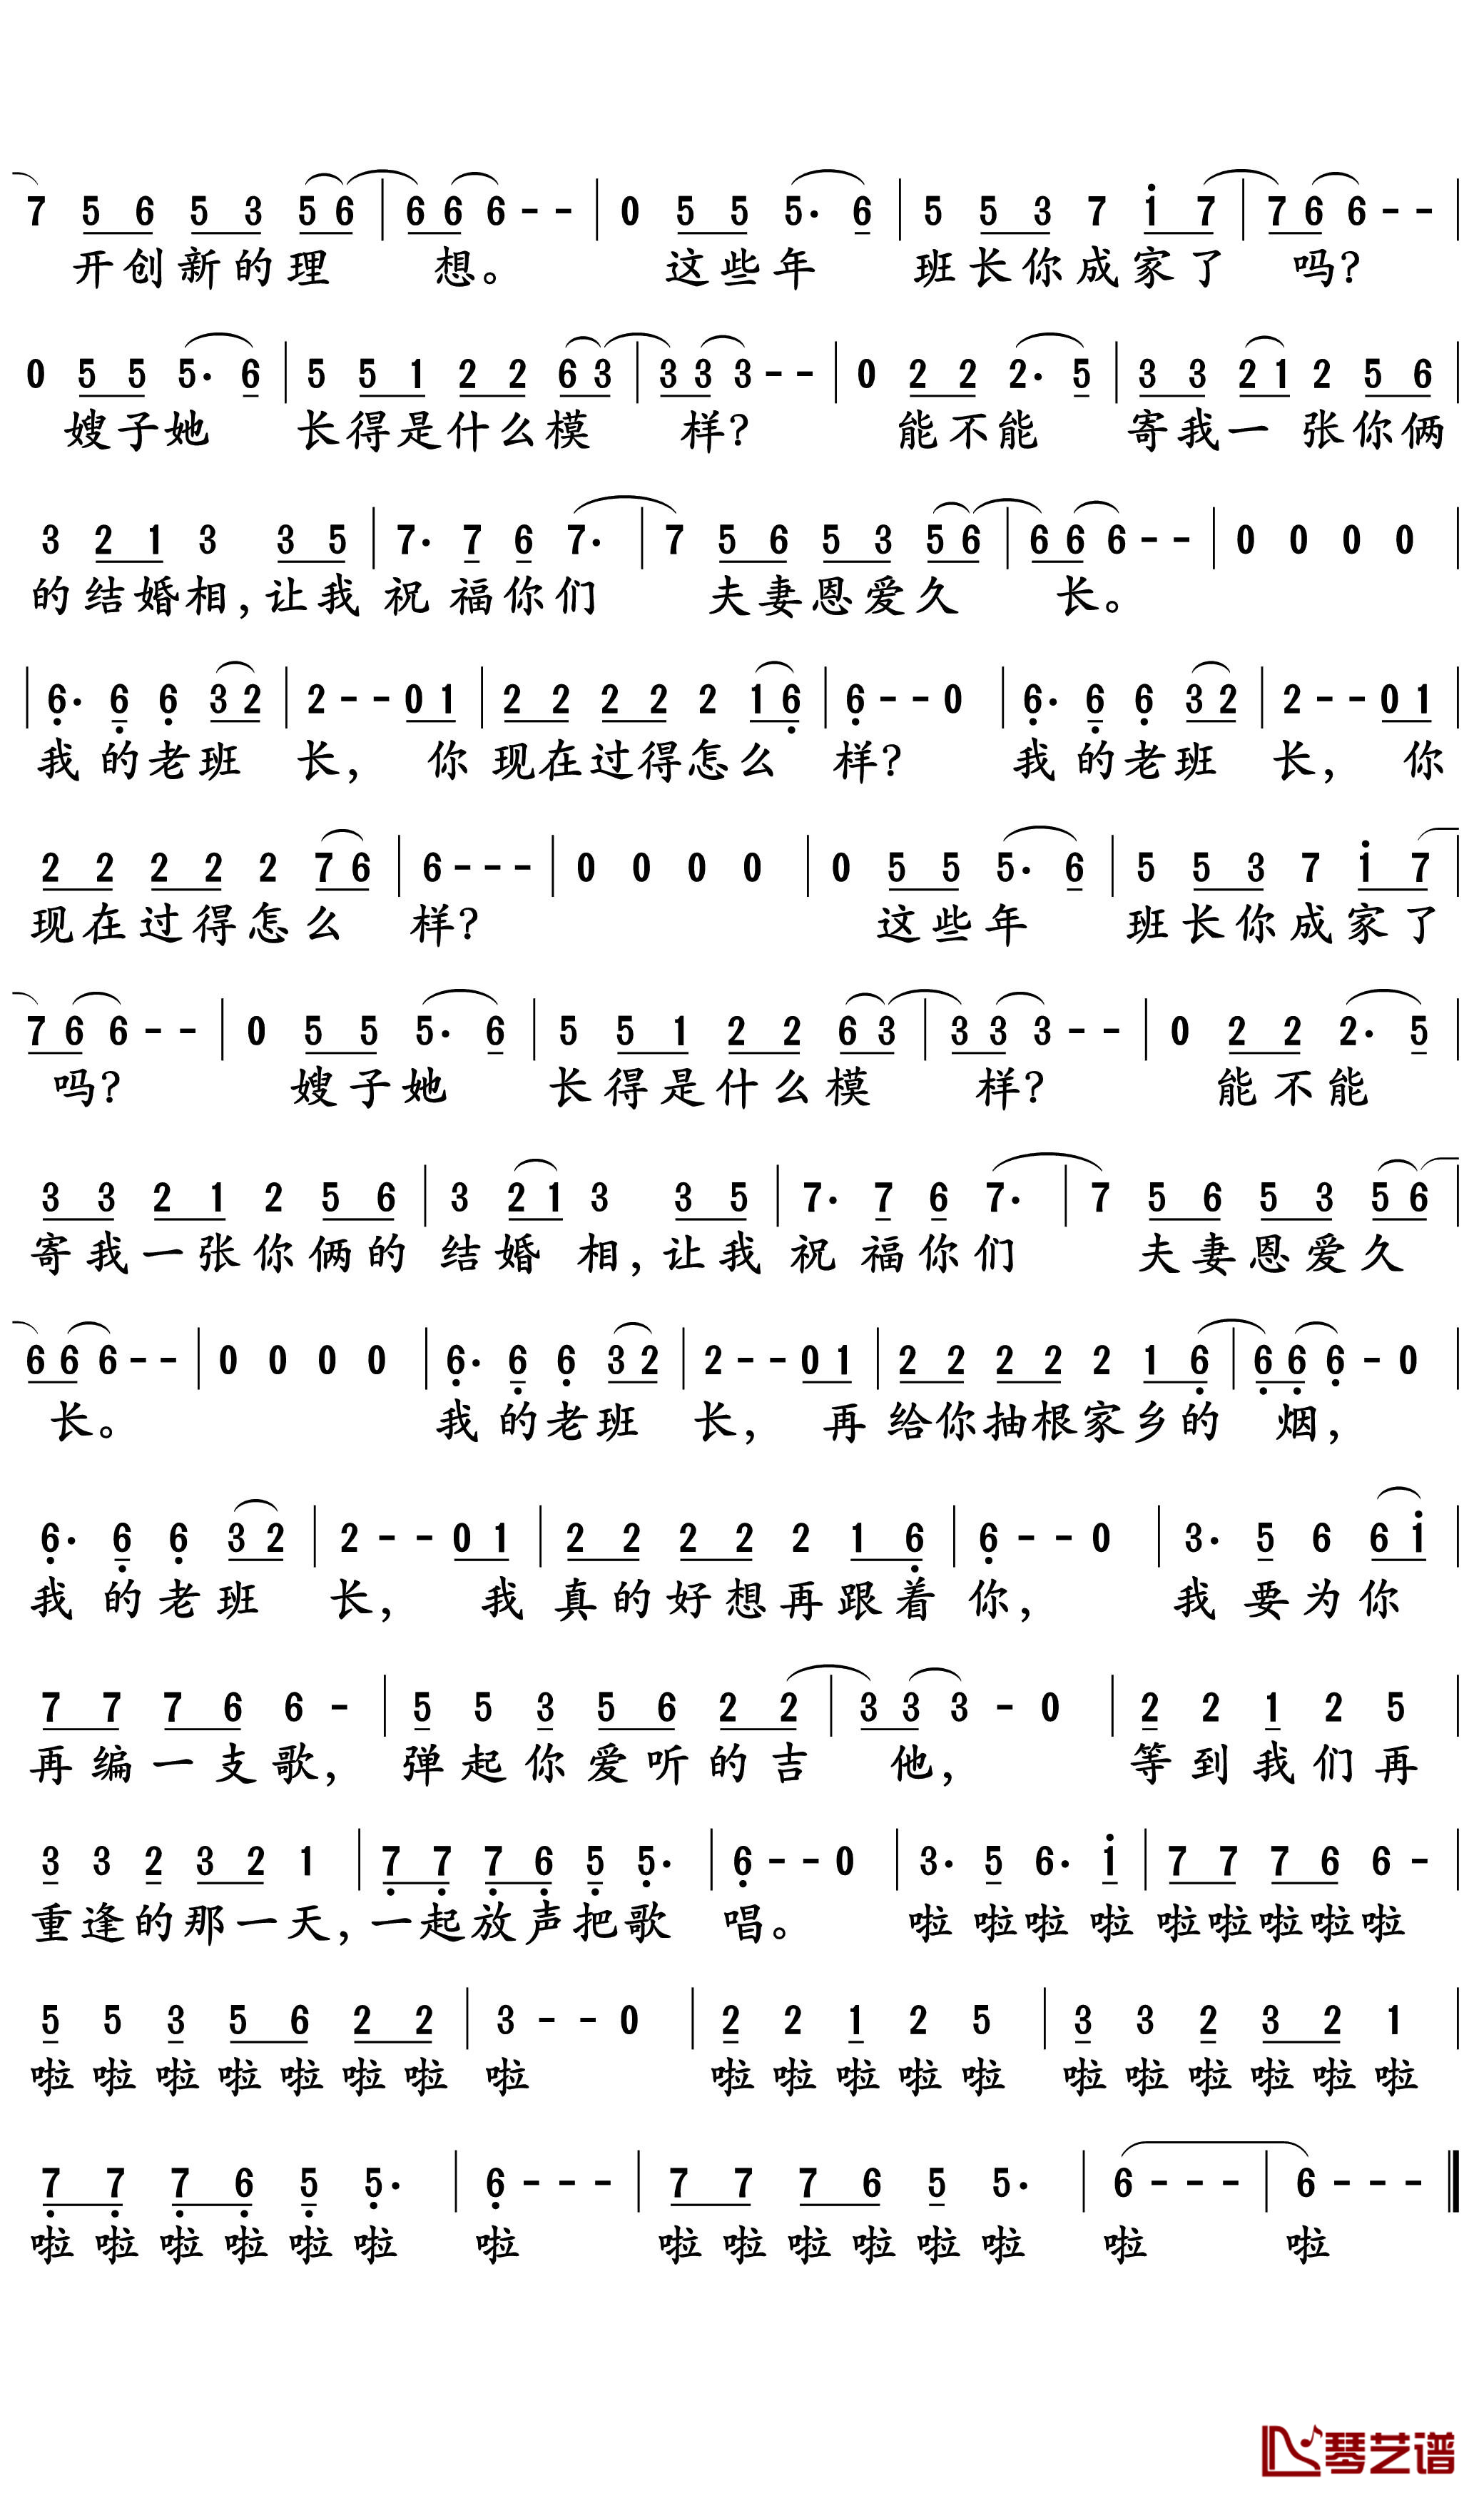 7 5 6 5 3 5 6 | 6 6 6 - - | 0 5 5 5· 6 | 5 5 3 7 i 7 | 7 6 6 - - |
开创新的理 想。 这些年 班长你成家了 吗?
0 5 5 5· 6 | 5 5 1 2 2 6 3 | 3 3 3 - - | 0 2 2 2· 5 | 3 3 2 1 2 5 6 |
嫂子她 长得是什么模 样? 能不能 寄我一 张你俩
3 2 1 3 3 5 | 7· 7 6 7· | 7 5 6 5 3 5 6 | 6 6 6 - - | 0 0 0 0 |
的结婚相,让我 祝福你们 夫妻恩爱久 长。
| 6· 6 6 3 2 | 2 - - 0 1 | 2 2 2 2 2 1 6 | 6 - - 0 | 6· 6 6 3 2 | 2 - - 0 1 |
我的老班 长, 你 现在过得怎么 样? 我的老班 长, 你
2 2 2 2 2 7 6 | 6 - - - | 0 0 0 0 | 0 5 5 5· 6 | 5 5 3 7 i 7 |
现在过得怎么 样? 这些年 班长你成家了
7 6 6 - - | 0 5 5 5· 6 | 5 5 1 2 2 6 3 | 3 3 3 - - | 0 2 2 2· 5 |
吗? 嫂子她 长得是什么模 样? 能不能
3 3 2 1 2 5 6 | 3 2 1 3 3 5 | 7· 7 6 7· | 7 5 6 5 3 5 6 |
寄我一张你俩的 结婚 相,让我 祝福你们 夫妻恩爱久
6 6 6 - - | 0 0 0 0 | 6· 6 6 3 2 | 2 - - 0 1 | 2 2 2 2 2 1 6 | 6 6 6 - 0 |
长。 我的老班 长, 再 给你抽根家乡的 烟,
6· 6 6 3 2 | 2 - - 0 1 | 2 2 2 2 2 1 6 | 6 - - 0 | 3· 5 6 6 i |
我的老班 长, 我 真的好想再跟着 你, 我要为你
7 7 7 6 6 - | 5 5 3 5 6 2 2 | 3 3 3 - 0 | 2 2 1 2 5 |
再编一支歌, 弹起你爱听的吉 他, 等到我们再
3 3 2 3 2 1 | 7 7 7 6 5 5· | 6 - - 0 | 3· 5 6· i | 7 7 7 6 6 - |
重逢的那一天,一起放声把歌 唱。 啦啦啦啦 啦啦啦啦啦
5 5 3 5 6 2 2 | 3 - - 0 | 2 2 1 2 5 | 3 3 2 3 2 1 |
啦啦啦啦啦啦啦 啦 啦啦啦啦啦 啦啦啦啦啦啦
7 7 7 6 5 5· | 6 - - - | 7 7 7 6 5 5· | 6 - - - | 6 - - - ‖
啦啦啦啦啦啦 啦 啦啦啦啦啦啦 啦 啦
琴艺谱